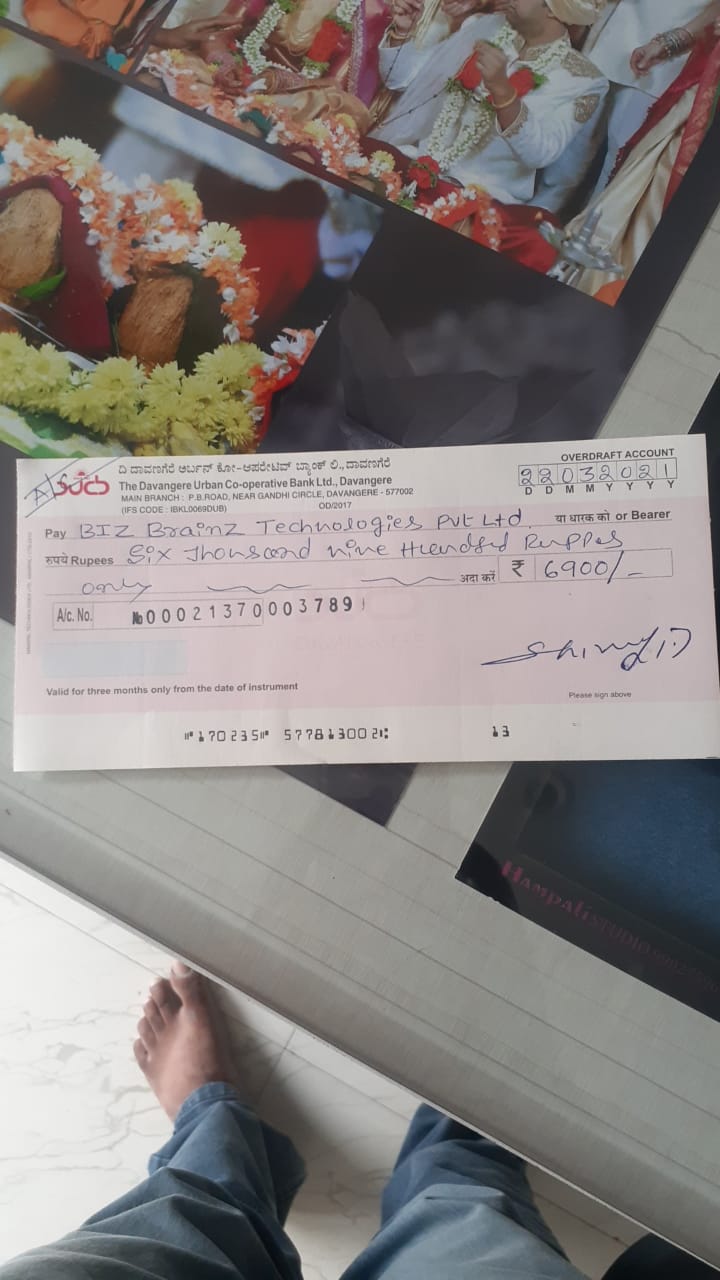 ದಿ ದಾವಣಗೆರೆ ಅರ್ಬನ್ ಕೋ-ಆಪರೇಟಿವ್ ಬ್ಯಾಂಕ್ ಲಿ., ದಾವಣಗೆರೆ
The Davangere Urban Co-operative Bank Ltd., Davangere
MAIN BRANCH : P.B.ROAD, NEAR GANDHI CIRCLE, DAVANGERE - 577002
(IFS CODE : IBKL0069DUB) OD/2017
OVERDRAFT ACCOUNT
22032021
D D M M Y Y Y Y
Pay BIZ Brainz Technologies Pvt Ltd. या धारक को or Bearer
रुपये Rupees Six Thousand nine Hundred Rupples
only अदा करें ₹ 6900/-
A/c. No. No 00021370003789
Valid for three months only from the date of instrument
Please sign above
⑈170235⑈ 577813002⑆ 13
HAMPALI STUDIO